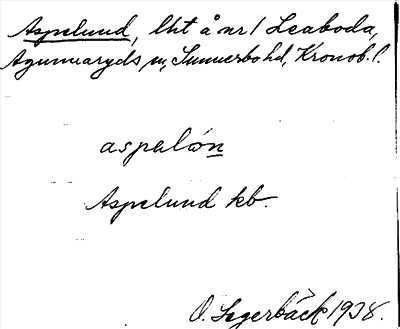 Aspelund, lht å nr 1 Leaboda,
Agunnaryds sn, Sunnerbo hd, Kronob. l.
aspalón
Aspelund kb.
O. Segerbäck 1938.